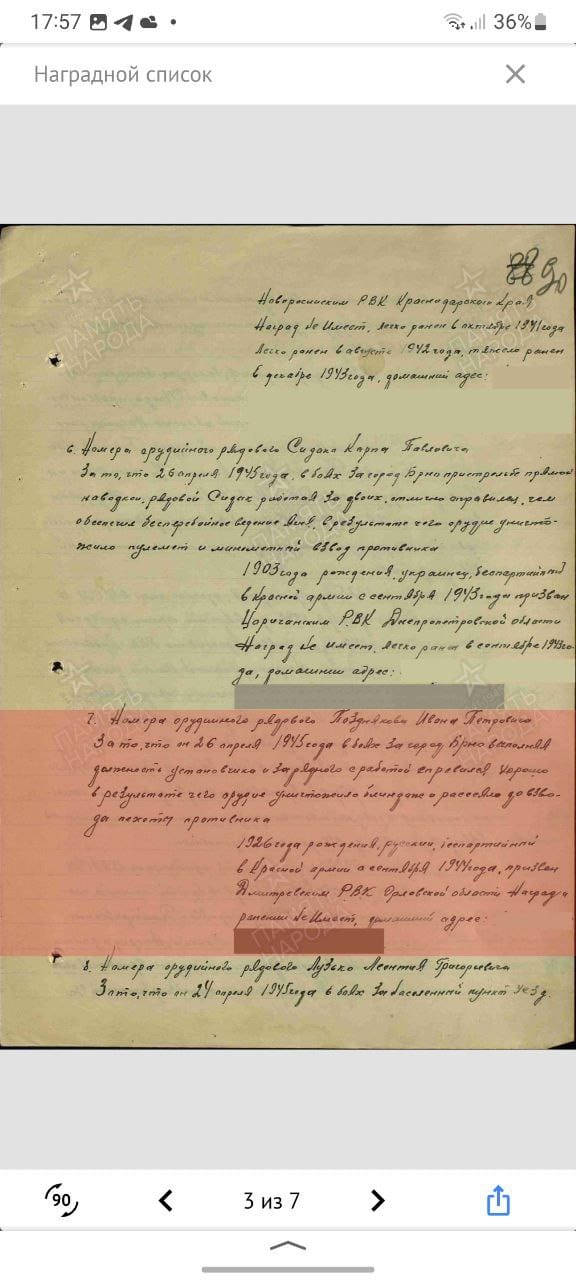 17:57
36%
Наградной список
90
Новоросийским РВК Краснодарского Края
Наград не Имеет, легко ранен в октябре 1941 года
Легко ранен в августе 1942 года, тяжело ранен
в декабре 1943 года, домашний адес:
6. Номера орудийного рядового Сидака Карпа Павловича
За то, что 26 апреля 1945 года, в боях за город Брно при стрельбе прямой
наводкой, рядовой Сидак работая за двоих, отлично справился, чем
обеспечил бесперебойное ведение огня, в результате чего орудие уничто-
жило пулемет и минометный взвод противника
1903 года рождения, украинец, беспартийный
в Красной армии с сентября 1943 года призван
Царичанским РВК Днепропетровской области
Наград не имеет, легко ранен в сентябре 1943 го-
да, домашний адрес:
7. Номера орудийного рядового Позднякова Ивана Петровича
За то, что он 26 апреля 1945 года в боях за город Брно выполняя
должность установщика и зарядного с работой справился хорошо
в результате чего орудие уничтожило блиндаж и рассеяло до взво-
да пехоты противника
1926 года рождения, русский, беспартийный
в Красной армии с сентября 1944 года, призван
Дмитревским РВК Орловской области Наград и
ранений не Имеет, домашний адрес:
8. Номера орудийного рядового Лузько Леонтия Григорьевича
За то, что он 24 апреля 1945 года в боях за населенный пункт
ПАМЯТЬ
НАРОДА
90
3 из 7